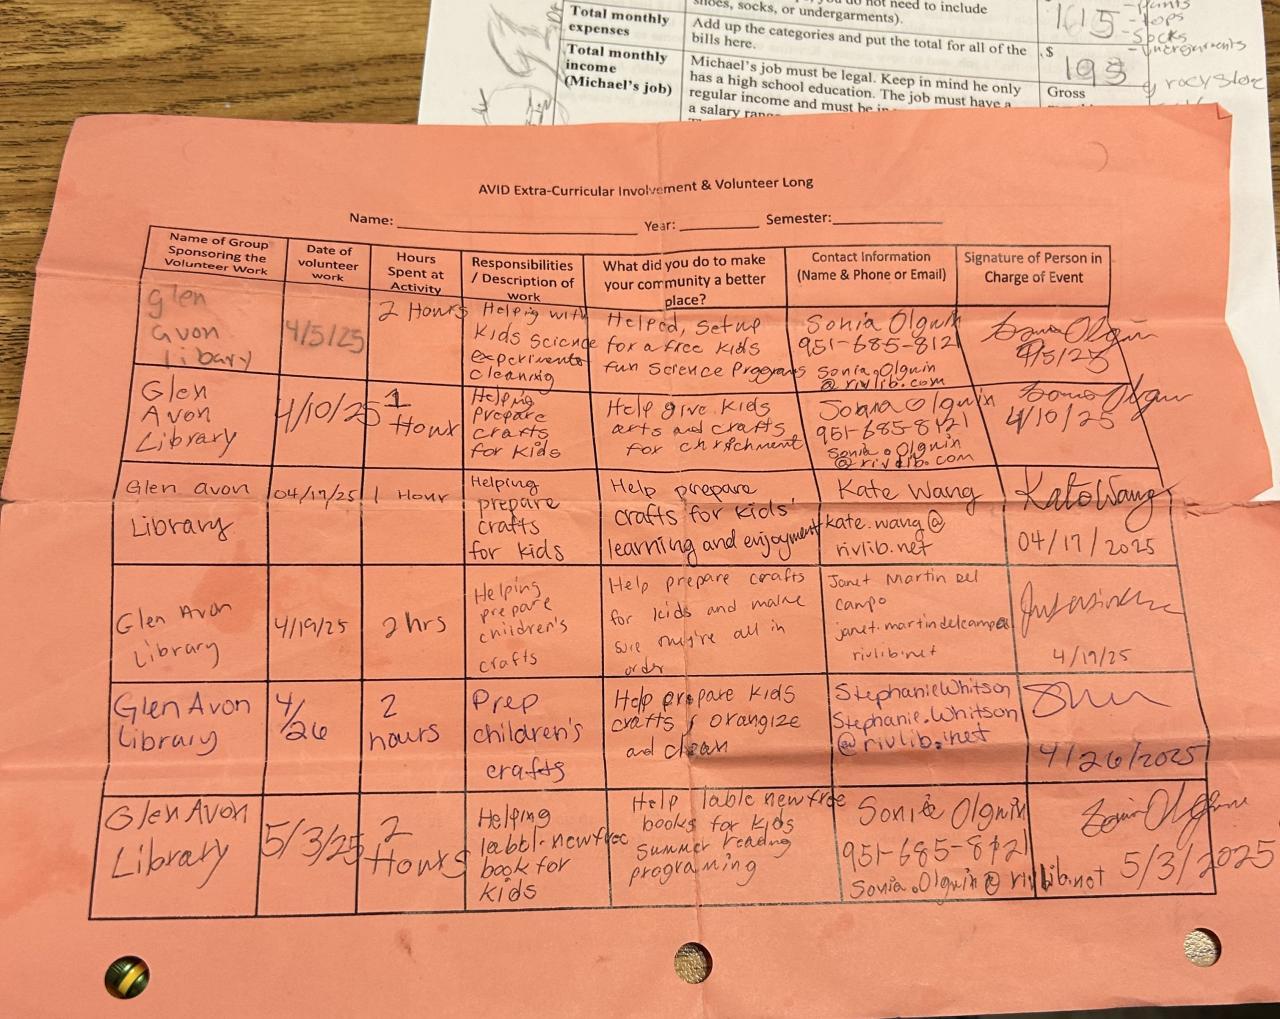 shoes, socks, or undergarments).
Total monthly expenses
Add up the categories and put the total for all of the
bills here.
Total monthly
income
(Michael's job)
Michael's job must be legal. Keep in mind he only
has a high school education. The job must have a
regular income and must be in
a salary
$
Gross
-tops
-socks
AVID Extra-Curricular Involvement & Volunteer Long
Name:
Year:
Semester:
Name of Group
Sponsoring the
Volunteer Work
Date of
volunteer
work
Hours
Spent at
Activity
Responsibilities
/ Description of
work
What did you do to make
your community a better
place?
Contact Information
(Name & Phone or Email)
Signature of Person in
Charge of Event
Glen
Avon
Libary
4/5/25
2 Hours
Helpig with
Kids Science
experiments
cleaning
Helped, setup
for a free kids
fun Science Programs
Sonia Olguin
951-685-8121
Sonia.Olguin
@rivlib.com
Sonia Olguin
4/5/25
Glen
Avon
Library
4/10/25
1
Hour
Helping
Prepare
crafts
for kids
Help give kids
arts and crafts
for enrichment
Sonia Olguin
951-685-8121
Sonia.Olguin
@rivlib.com
Sonia Olguin
4/10/25
Glen avon
Library
04/17/25
1 Hour
Helping
prepare
crafts
for kids
Help prepare
crafts for kids'
learning and enjoyment
Kate Wang
kate.wang@
rivlib.net
Kate Wang
04/17/2025
Glen Avon
Library
4/19/25
2 hrs
Helping
prepare
children's
crafts
Help prepare crafts
for kids and make
sure they're all in
order
Janet Martin del
campo
janet.martindelcampo@
rivlib.net
4/19/25
Glen Avon
Library
4/
26
2
hours
Prep
children's
crafts
Help prepare kids
crafts, orangize
and clean
Stephanie Whitson
Stephanie.Whitson
@rivlib.net
4/26/2025
Glen Avon
Library
5/3/25
2
Hours
Helping
labbl new free
book for
kids
Help lable new free
books for kids
summer reading
programing
Sonia Olguin
951-685-8121
Sonia.Olguin@rivlib.net
Sonia Olguin
5/3/2025